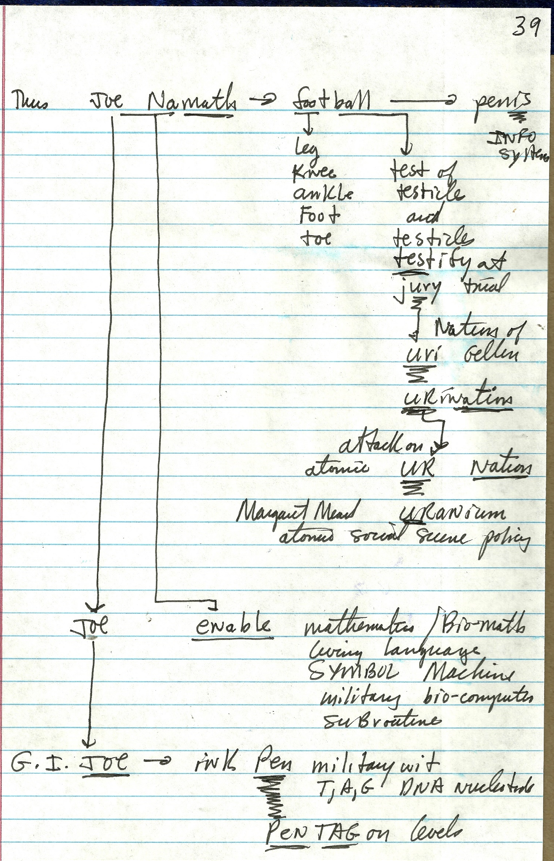 39
Thus Joe Namath → football → penis
INFO
System
Leg
Knee test of
ankle testicle
Foot and
toe testicles
testify at
jury trial
Nations of
uri Geller
URiNations
attack on
atomic UR Nations
Margaret Mead URANium
atomic social scene policy
Joe enable mathematics / Bio-math
living language
SYMBOL Machine
military bio-computer
subroutine
G.I. Joe → ink Pen military wit
T, A, G DNA nucleotide
PeNTAGon levels